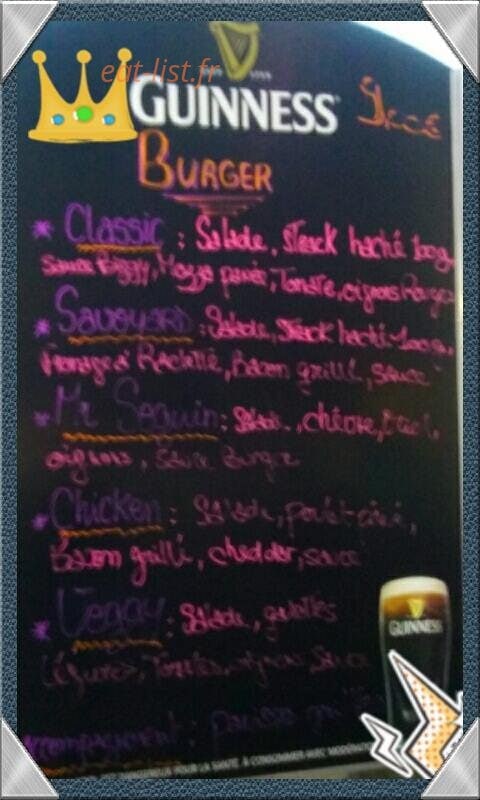 eat-list.fr
GUINNESS
BURGER
* Classic : Salade, steack haché
Sauce Biggy, Mozza panée, Tomate, oignons Rouges
* Savoyard : Salade, steack haché
Fromage à Raclette, Bacon grillé, sauce
* Mr Seguin : Salade, chèvre,
oignons, sauce Burger
* Chicken : Salade, poulet
Bacon grillé, chedder, sauce
* Veggy : Salade,
Légumes, Tomates, oignons, Sauce
GUINNESS
Accompagnement :
POUR LA SANTÉ. À CONSOMMER AVEC MODÉRATION